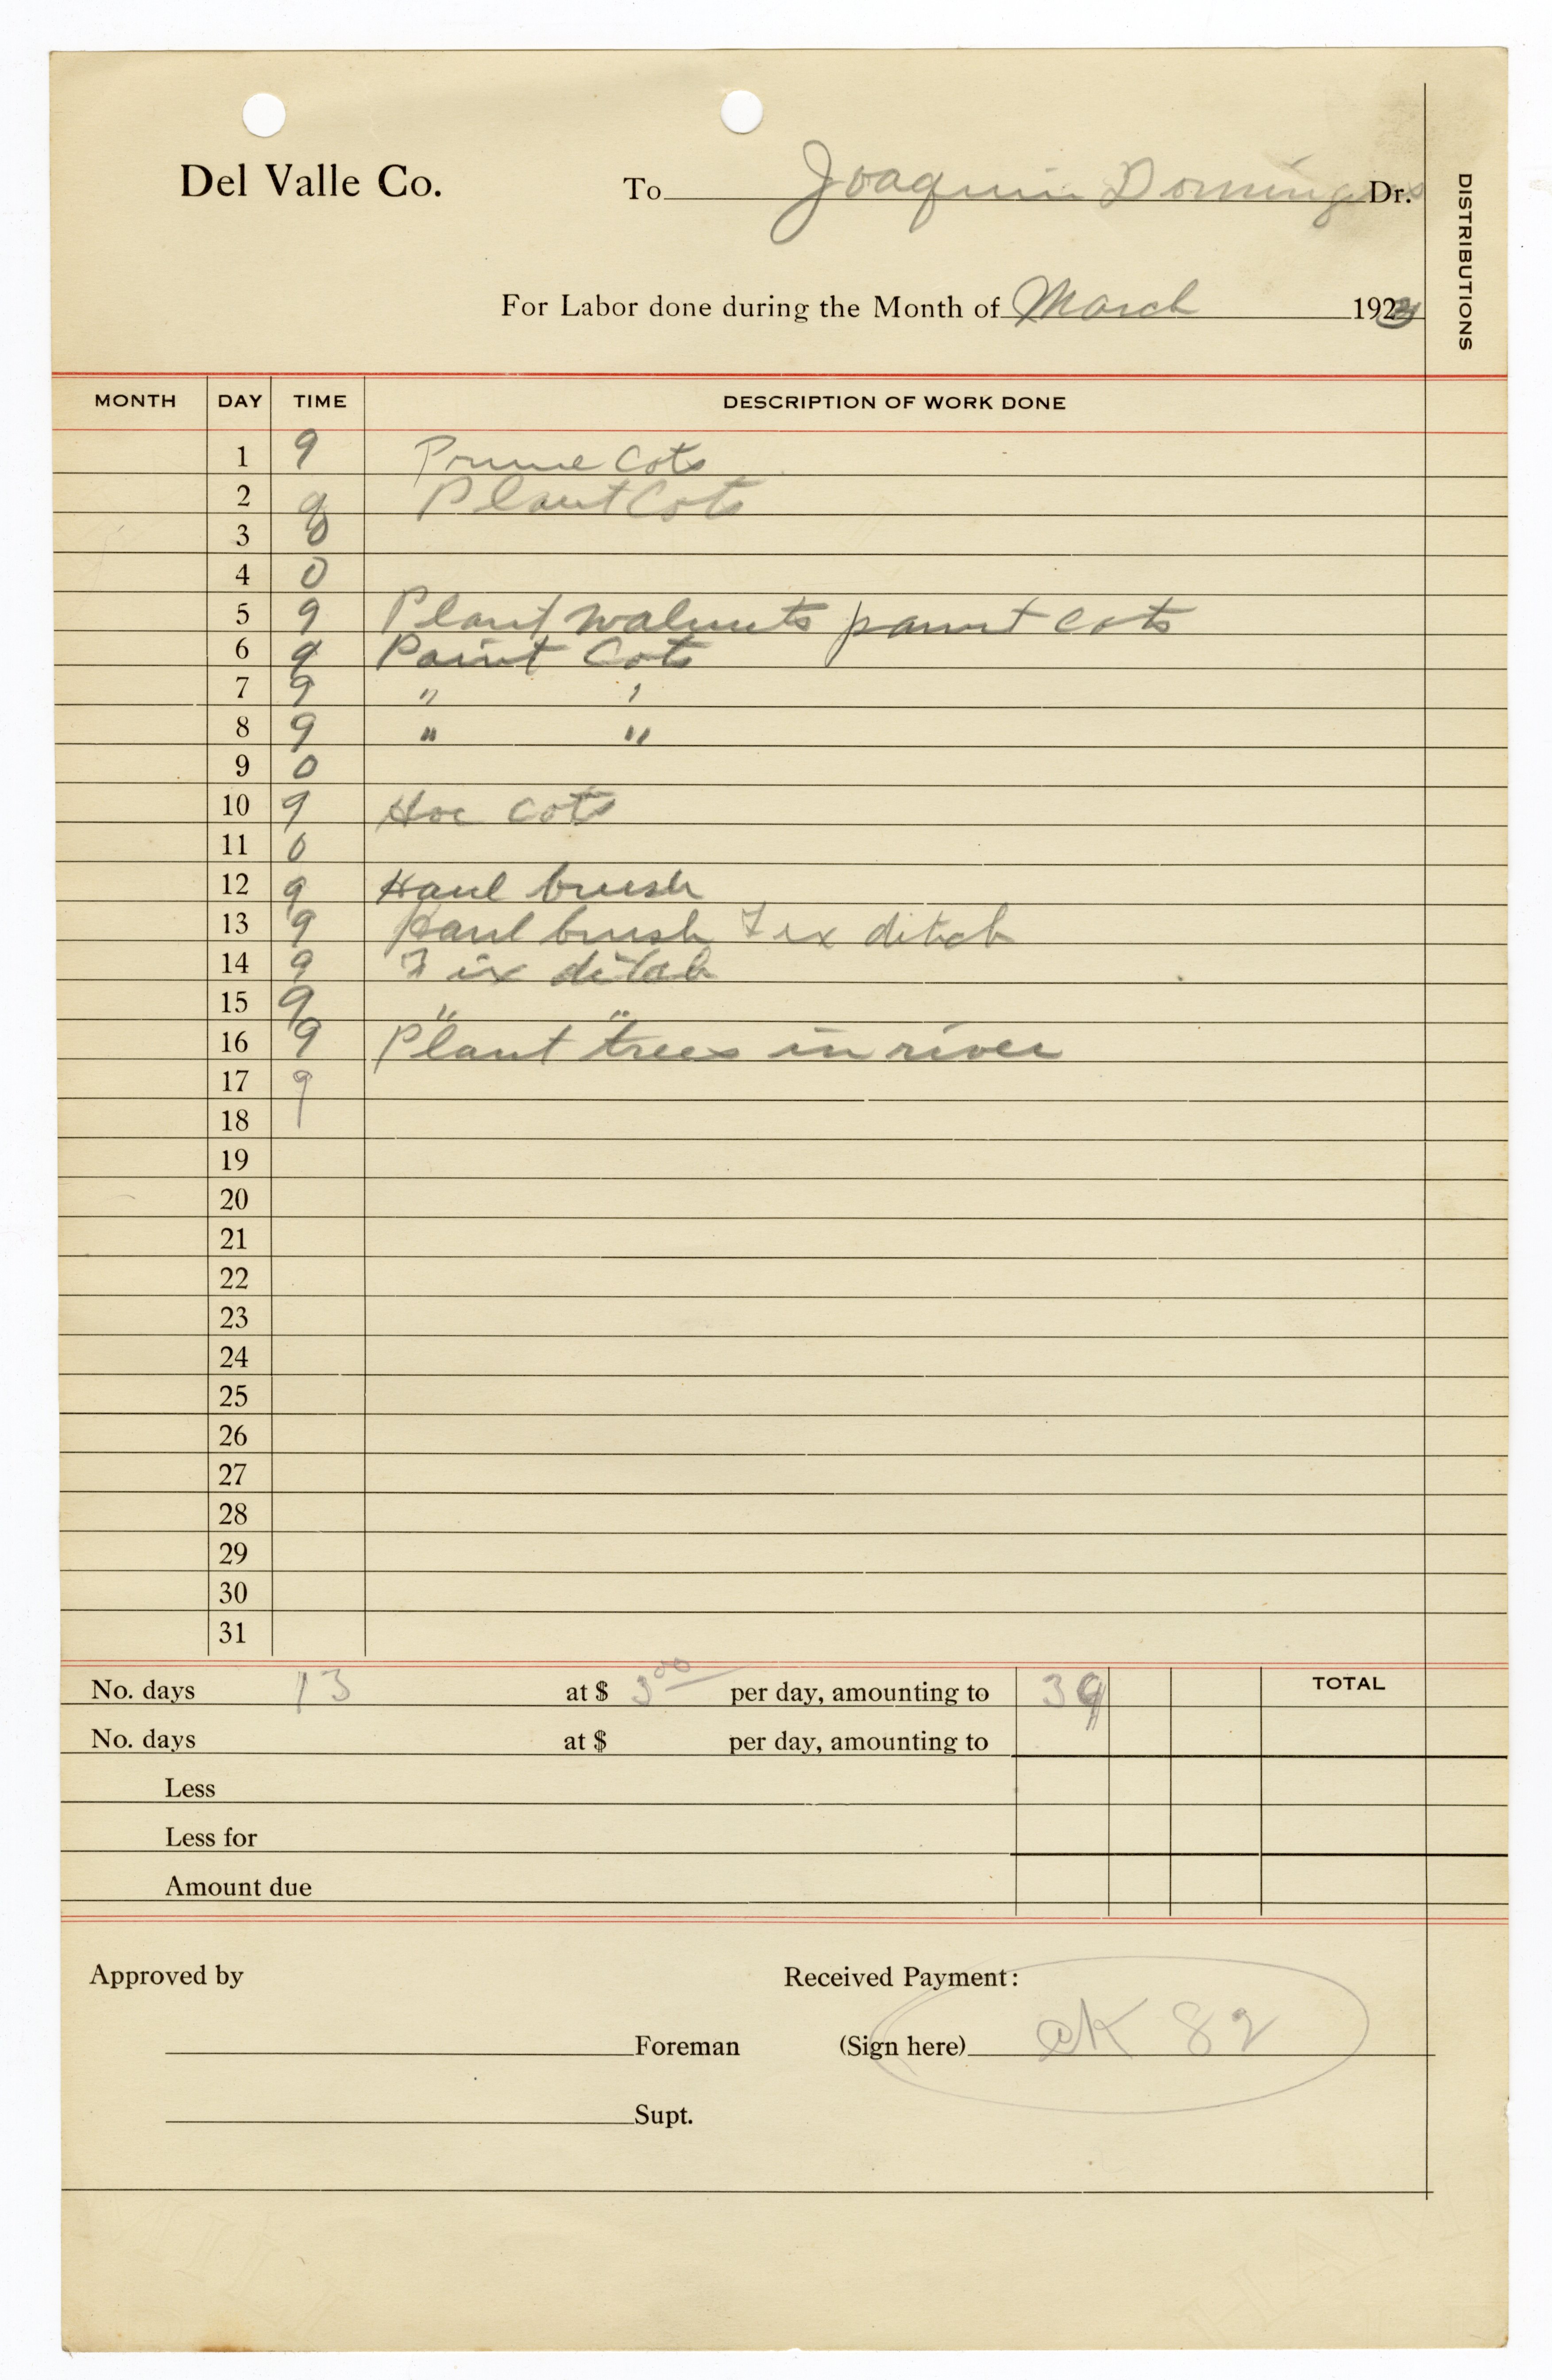 Del Valle Co.
To Joaquin Domingues Dr.
For Labor done during the Month of March 1923
DISTRIBUTIONS
MONTH DAY TIME DESCRIPTION OF WORK DONE
1 9 Prune Cots
2 9 Plant Cots
3 0
4 0
5 9 Plant walnuts paint cots
6 9 Paint Cots
7 9 " "
8 9 " "
9 0
10 9 Hoe cots
11 0
12 9 Haul brush
13 9 Haul brush Fix ditch
14 9 Fix ditch
15 9 " "
16 9 Plant trees in river
17 9
18
19
20
21
22
23
24
25
26
27
28
29
30
31
No. days 13 at $ 3 00 per day, amounting to 39 TOTAL
No. days at $ per day, amounting to
Less
Less for
Amount due
Approved by Received Payment:
Foreman (Sign here) cK 82
Supt.